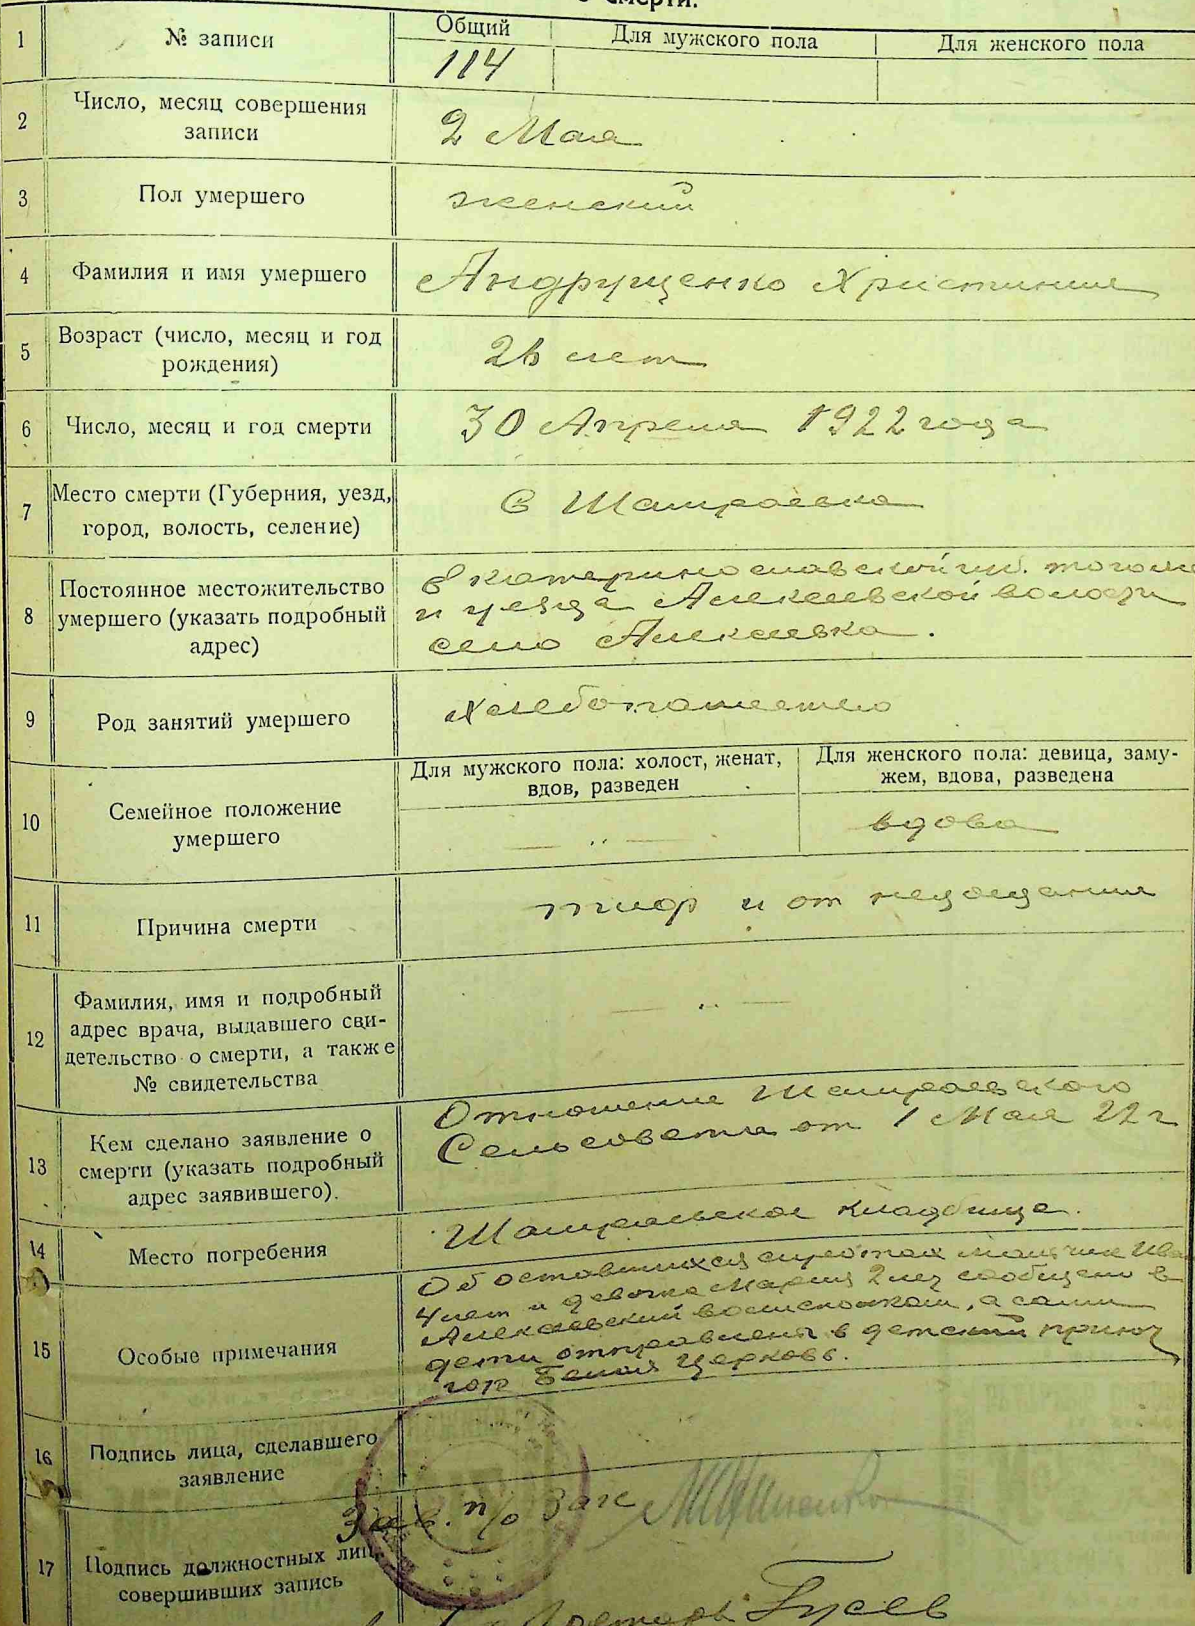 о смерти.
1 № записи Общий Для мужского пола Для женского пола
114
2 Число, месяц совершения
записи
2 Мая
3 Пол умершего женский
4 Фамилия и имя умершего Андрущенко Христиния
5 Возраст (число, месяц и год
рождения)
26 лет
6 Число, месяц и год смерти 30 Апреля 1922 года
7 Место смерти (Губерния, уезд,
город, волость, селение)
С Шамраевка
8 Постоянное местожительство
умершего (указать подробный
адрес)
Екатеринославской губ. того же
и уезда Алексеевской волости
село Алексеевка.
9 Род занятий умершего Хлебопашество
10 Семейное положение
умершего
Для мужского пола: холост, женат,
вдов, разведен
Для женского пола: девица, заму-
жем, вдова, разведена
вдова
11 Причина смерти тиф и от недоедания
12 Фамилия, имя и подробный
адрес врача, выдавшего сви-
детельство о смерти, а также
№ свидетельства
13 Кем сделано заявление о
смерти (указать подробный
адрес заявившего).
Отношение Шамраевского
Сельсовета от 1 Мая 22 г
14 Место погребения Шамраевское кладбище.
15 Особые примечания
Об оставшихся сиротах мальчик Иван
4 лет и девочка Мария 2 лет сообщено в
Алексеевский волисполком, а сами
дети отправлены в детский приют
гор Белая Церковь.
16 Подпись лица, сделавшего
заявление
Зав. п/о Загс
17 Подпись должностных лиц,
совершивших запись
Гусев